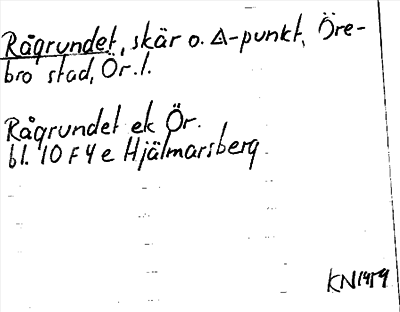 Rågrundet, skär o. △-punkt, Öre-
bro stad, Ör. l.
Rågrundet ek Ör.
bl. 10 F 4 e Hjälmarsberg
KN1959